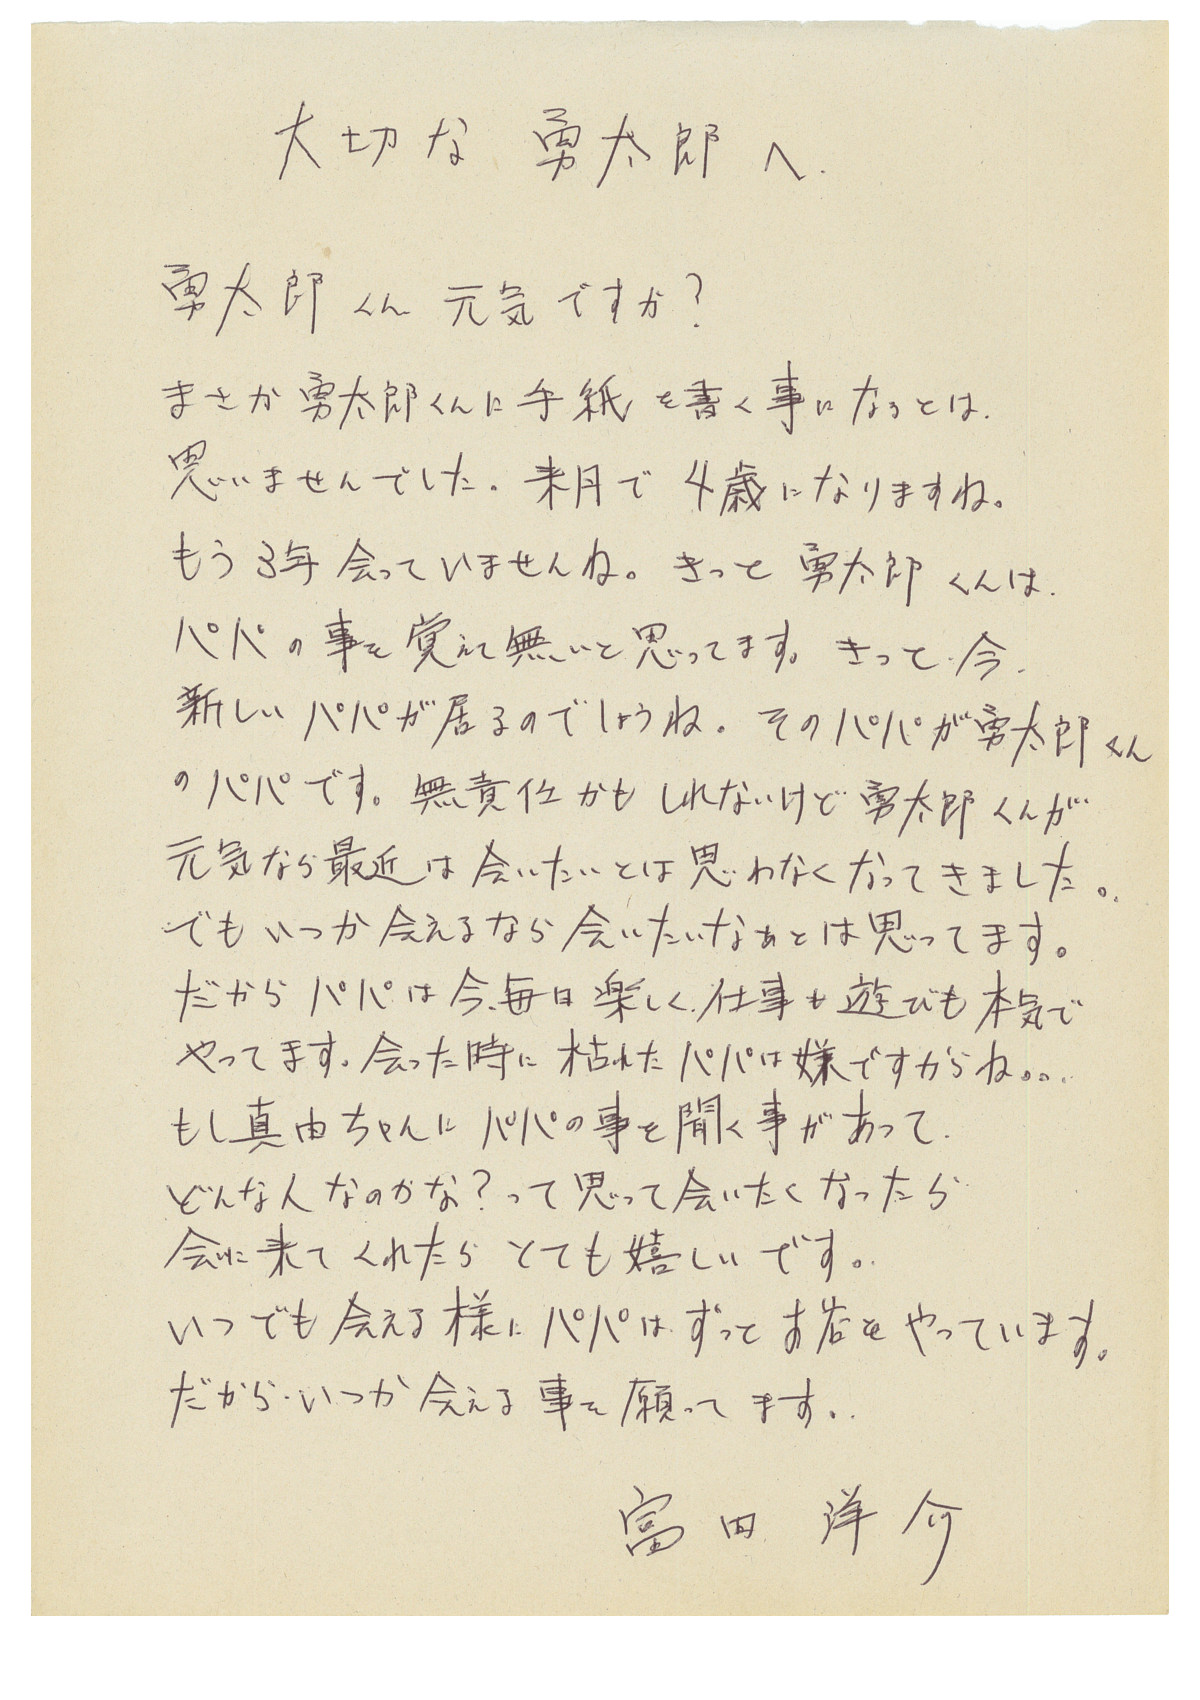 大切な 勇太郎へ.
勇太郎くん 元気ですか?
まさか勇太郎くんに手紙を書く事になるとは.
思いませんでした。来月で4歳になりますね。
もう3年会っていませんね。きっと勇太郎くんは.
パパの事を覚えて無いと思ってます。きっと今.
新しいパパが居るのでしょうね。そのパパが勇太郎くん
のパパです。無責任かもしれないけど勇太郎くんが
元気なら最近は会いたいとは思わなくなってきました。
でもいつか会えるなら会いたいなぁとは思ってます。
だからパパは今、毎日楽しく.仕事も遊びも本気で
やってます。会った時に枯れたパパは嫌ですからね。。.
もし真由ちゃんにパパの事を聞く事があって.
どんな人なのかな?って思って会いたくなったら
会いに来てくれたらとても嬉しいです。
いつでも会える様にパパはずっとお店をやっています。
だから・いつか会える事を願ってます。.
富田 洋介